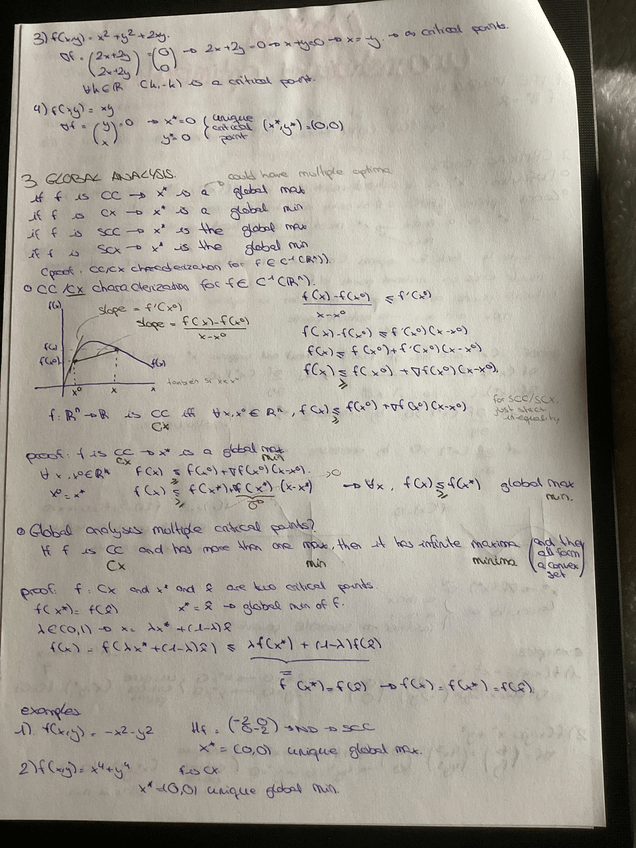 3) f(x,y) = x² + y² + 2xy.
∇f = (2x+2y 2x+2y) = (0 0) → 2x+2y=0 → x+y=0 → x=-y. → ∞ critical points.
∀h∈ℝ (h,-h) is a critical point.
4) f(x,y) = xy
∇f = (y x) = 0 → x*=0 y*=0 (unique critical point (x*,y*)=(0,0)
3. GLOBAL ANALYSIS.
could have multiple optima
if f is CC → x* is a global max
if f is CX → x* is a global min
if f is SCC → x* is the global max
if f is SCX → x* is the global min
(proof: CC/CX characterization for f∈C⁻¹(ℝⁿ)).
○ CC/CX characterization for f∈ C⁻¹(ℝⁿ).
f(x)
slope = f'(x⁰)
slope = f(x)-f(x⁰) / x-x⁰
f(x)
f(x⁰)
f(x)
x⁰ x x
f(x)-f(x⁰) / x-x⁰ ≤ f'(x⁰)
f(x)-f(x⁰) ≤ f'(x⁰)(x-x⁰)
f(x) ≤ f(x⁰) + f'(x⁰)(x-x⁰)
f(x) ≤ f(x⁰) + ∇f(x⁰)(x-x⁰),
≥
f: ℝⁿ→ℝ is CC iff ∀x,x⁰∈ℝⁿ, f(x) ≤ f(x⁰) + ∇f(x⁰)(x-x⁰)
CX ≥
for SCC/SCX, just strict inequality
proof: f is CC → x* is a global max
CX min
∀x,x⁰∈ℝⁿ f(x) ≤ f(x⁰) + ∇f(x⁰)(x-x⁰).
≥
x⁰=x* f(x) ≤ f(x*) + ∇f(x*)(x-x*) → ∀x, f(x) ≤ f(x*) global max
≥ 0 ≥ min.
○ Global analysis multiple critical points?
If f is CC and has more than one max, then it has infinite maxima (and they all form a convex set)
CX min minima
proof: f: CX and x* and x̂ are two critical points
f(x*) = f(x̂) x* = x̂ → global min of f.
λ∈(0,1) → x = λx* + (1-λ)x̂
f(x) = f(λx* + (1-λ)x̂) ≤ λf(x*) + (1-λ)f(x̂)
=
f(x*) = f(x̂) → f(x) = f(x*) = f(x̂)
examples
1) f(x,y) = -x²-y² Hf = (-2 0 0 -2) → ND → SCC
x* = (0,0) unique global max.
2) f(x,y) = x⁴+y⁴ f is CX
x* = (0,0) unique global min.